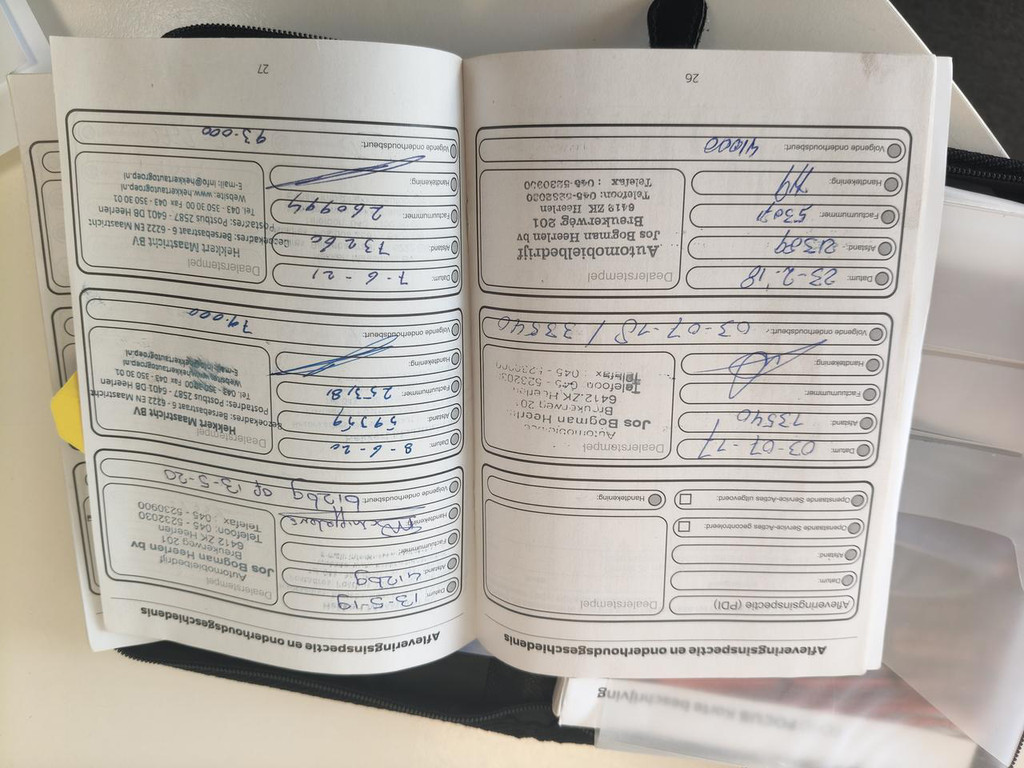 Afleveringsinspectie en onderhoudsgeschiedenis
Afleveringsinspectie (PDI)
Datum:
Afstand:
Openstaande Service-Acties gecontroleerd:
Openstaande Service-Acties uitgevoerd:
Dealerstempel
Handtekening:
Datum: 03-07-17
Afstand: 13540
Factuurnummer:
Handtekening:
Dealerstempel
Jos Bogman Heerlen
Breukerweg 20
6412 ZK Heerlen
Telefoon 045-52320
Telefax : 045 -
Volgende onderhoudsbeurt: 03-07-18 / 33540
Datum: 23-2-'18
Afstand: 21389
Factuurnummer:
Handtekening:
Dealerstempel
Automobielbedrijf
Jos Bogman Heerlen bv
Breukerweg 201
6412 ZK Heerlen
Telefoon: 045-5232030
Telefax : 045-5230900
Volgende onderhoudsbeurt: 41000
26
Afleveringsinspectie en onderhoudsgeschiedenis
Datum: 13-5-19
Afstand: 41269
Factuurnummer:
Handtekening:
Dealerstempel
Automobielbedrijf
Jos Bogman Heerlen bv
Breukerweg 201
6412 ZK Heerlen
Telefoon: 045 - 5232030
Telefax : 045 - 5230900
Volgende onderhoudsbeurt: 61269 op 13-5-20
Datum: 8-6-20
Afstand: 59359
Factuurnummer:
Handtekening:
Dealerstempel
Hekkert Maastricht BV
Bezoekadres: Bersebastraat 6 - 6222 EN Maastricht
Postadres: Postbus 2587 - 6401 DB Heerlen
Tel.: 043 - 350 30 00 Fax 043 - 350 30 01
Website: www.hekkertautogroep.nl
Volgende onderhoudsbeurt: 79.000
Datum: 7-6-21
Afstand: 73260
Factuurnummer: 260994
Handtekening:
Dealerstempel
Hekkert Maastricht BV
Bezoekadres: Bersebastraat 6 - 6222 EN Maastricht
Postadres: Postbus 2587 - 6401 DB Heerlen
Tel. : 043 - 350 30 00 Fax 043 - 350 30 01
Website: www.hekkertautogroep.nl
E-mail: info@hekkertautogroep.nl
Volgende onderhoudsbeurt: 93.000
27
FOCUS Korte beschrijving